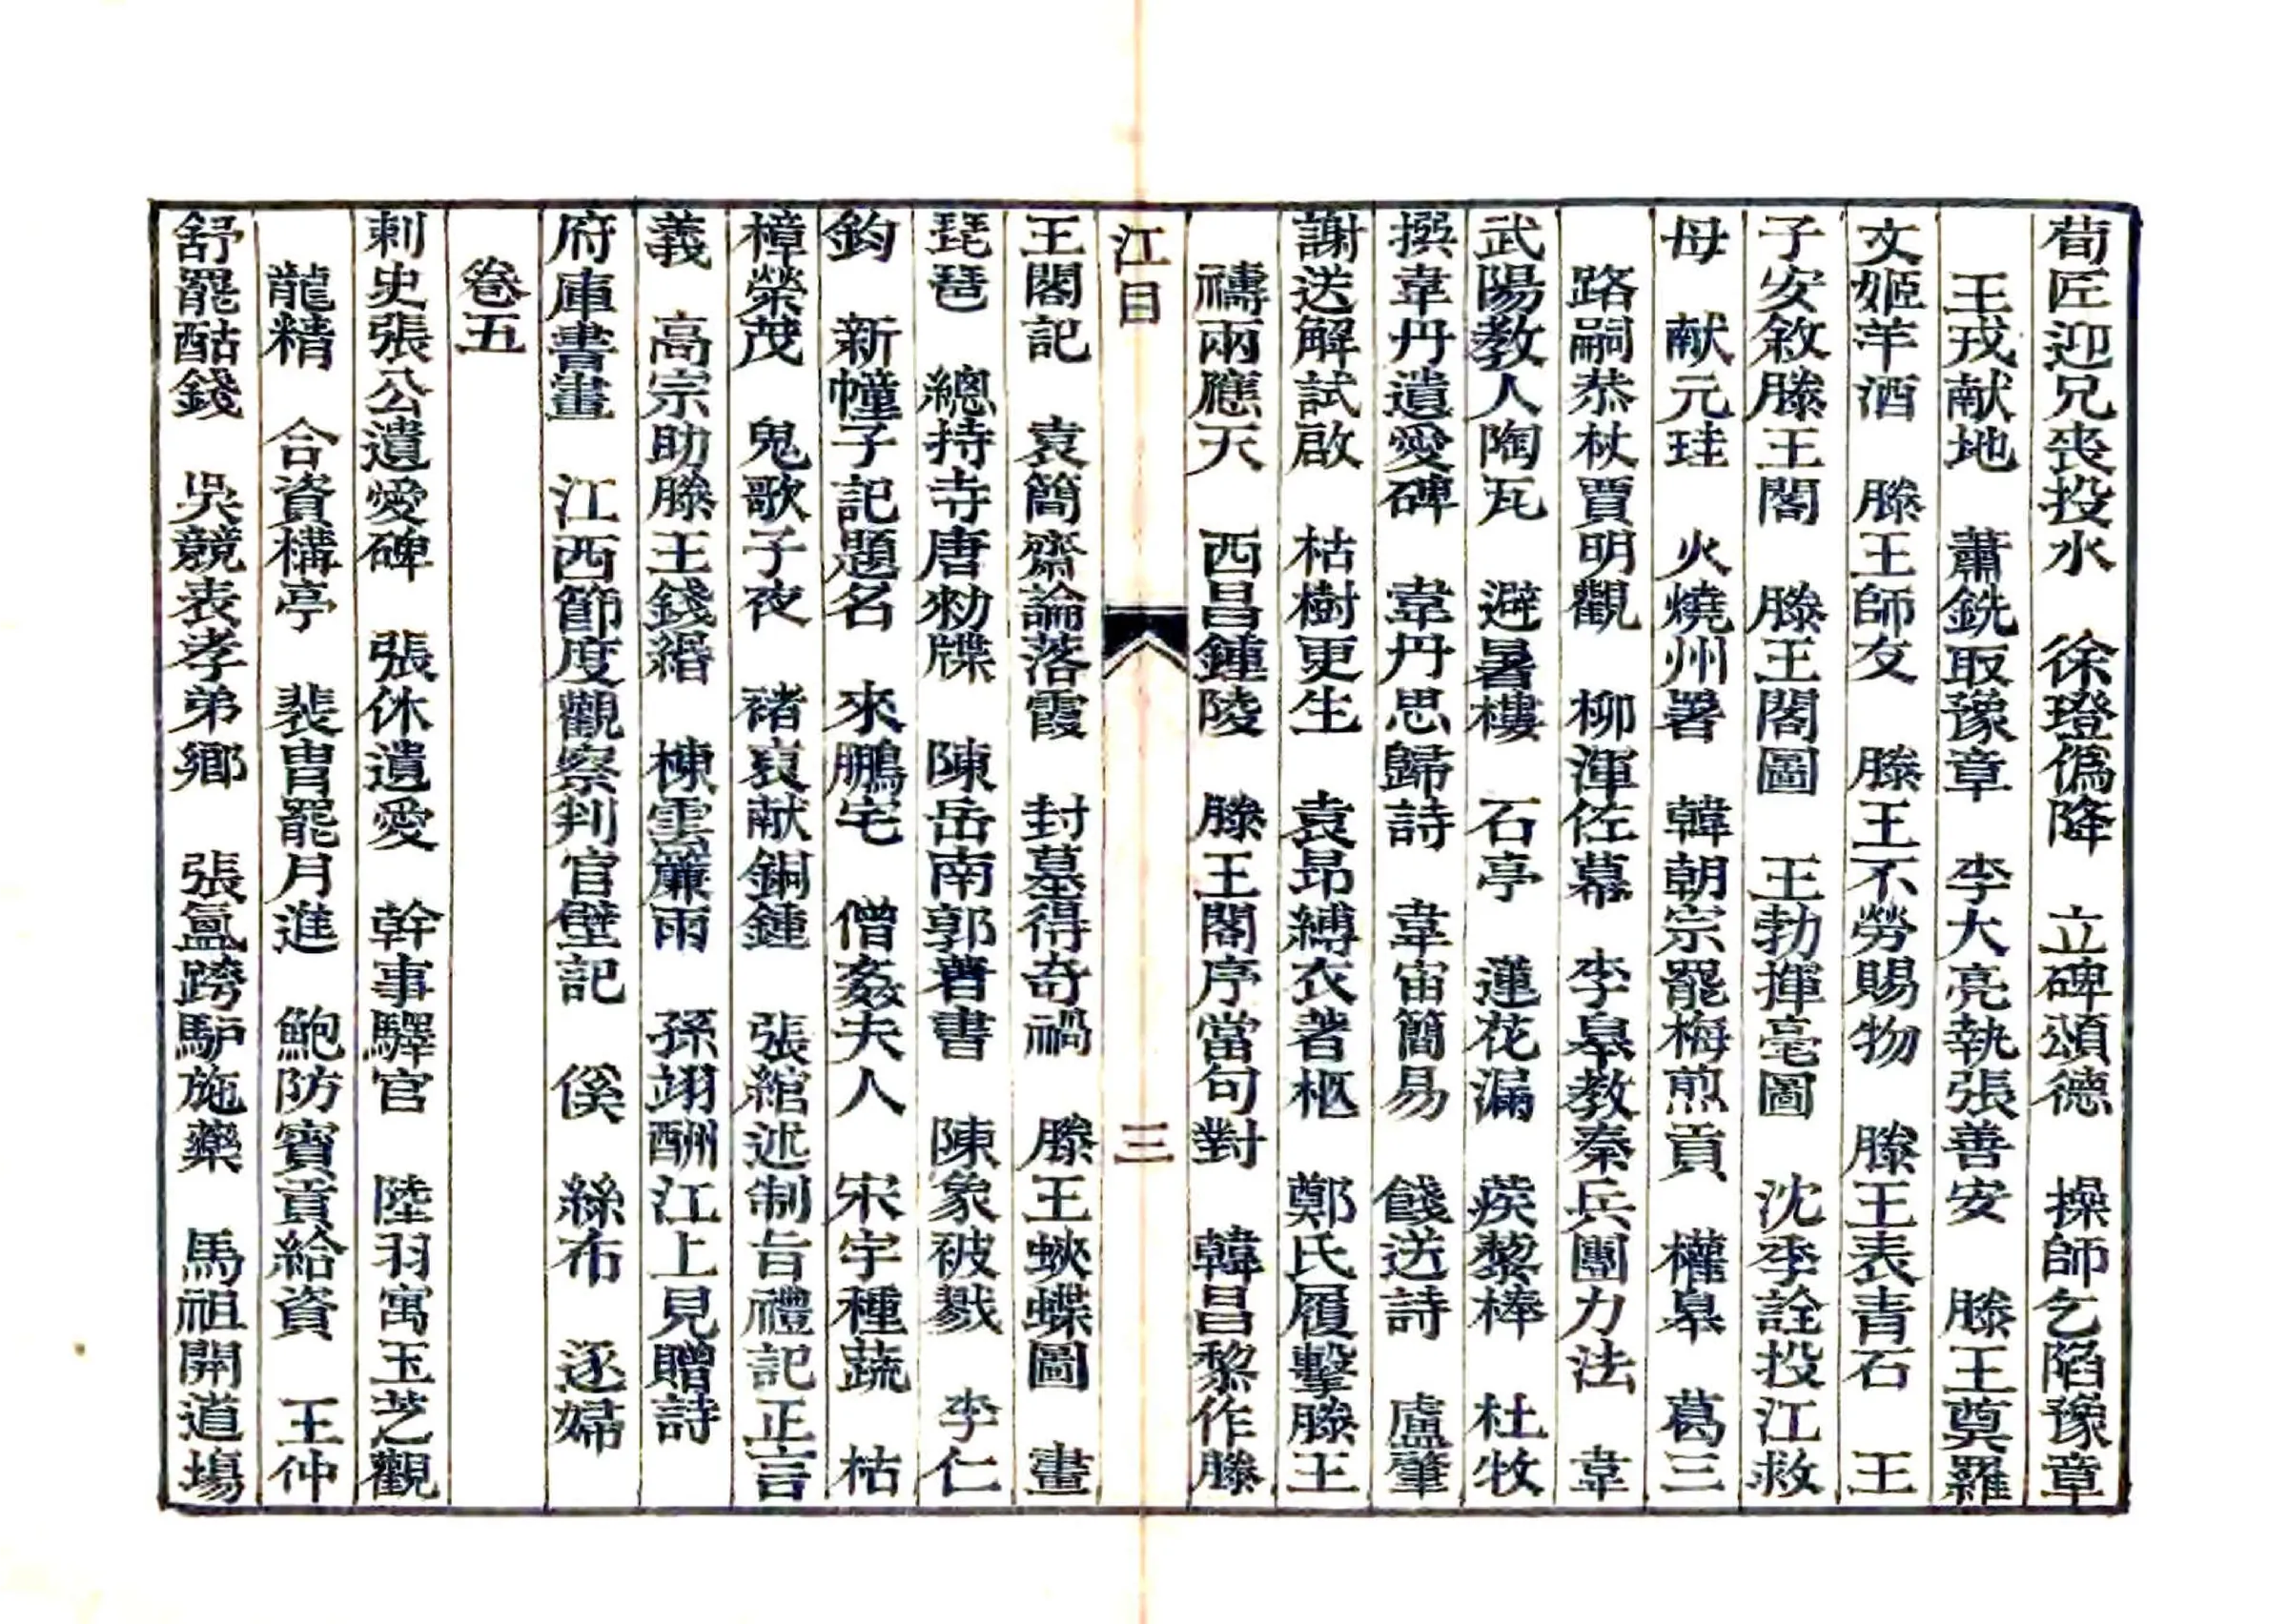 荀匠迎兄喪投水　徐璒偽降　立碑頌德　操師乞陷豫章
王戎献地　蕭銑取豫章　李大亮執張善安　滕王奠羅
文姬羊酒　滕王師友　滕王不勞賜物　滕王表青石　王
子安敘滕王閣　滕王閣圖　王勃揮毫圖　沈季詮投江救
母　献元珪　火燒州署　韓朝宗罷梅煎貢　權皐　葛三
路嗣恭杖賈明觀　柳渾佐幕　李皐教秦兵團力法　韋
武陽教人陶瓦　避暑樓　石亭　蓮花漏　蒺藜棒　杜牧
撰韋丹遺愛碑　韋丹思歸詩　韋宙簡易　餞送詩　盧肇
謝送解試啟　枯樹更生　袁昂縛衣著柩　鄭氏履擊滕王
禱兩應天　西昌鍾陵　滕王閣序當句對　韓昌黎作滕
江目　三
王閣記　袁簡齋論落霞　封墓得奇禍　滕王蛺蝶圖　畫
琵琶　總持寺唐勑牒　陳岳南郭著書　陳象被戮　李仁
鈞　新幢子記題名　來鵬宅　僧姦夫人　宋宇種蔬　枯
樟榮茂　鬼歌子夜　褚裒献銅鍾　張綰述制旨禮記正言
義　高宗助滕王錢緡　棟雲簾雨　孫翊酬江上見贈詩
府庫書畫　江西節度觀察判官壁記　傒　絲布　逐婦
卷五
剌史張公遺愛碑　張休遺愛　幹事驛官　陸羽寓玉芝觀
龍精　合資構亭　裴冑罷月進　鮑防賓貢給資　王仲
舒罷酤錢　吳競表孝弟鄉　張氳跨馿施藥　馬祖開道塲